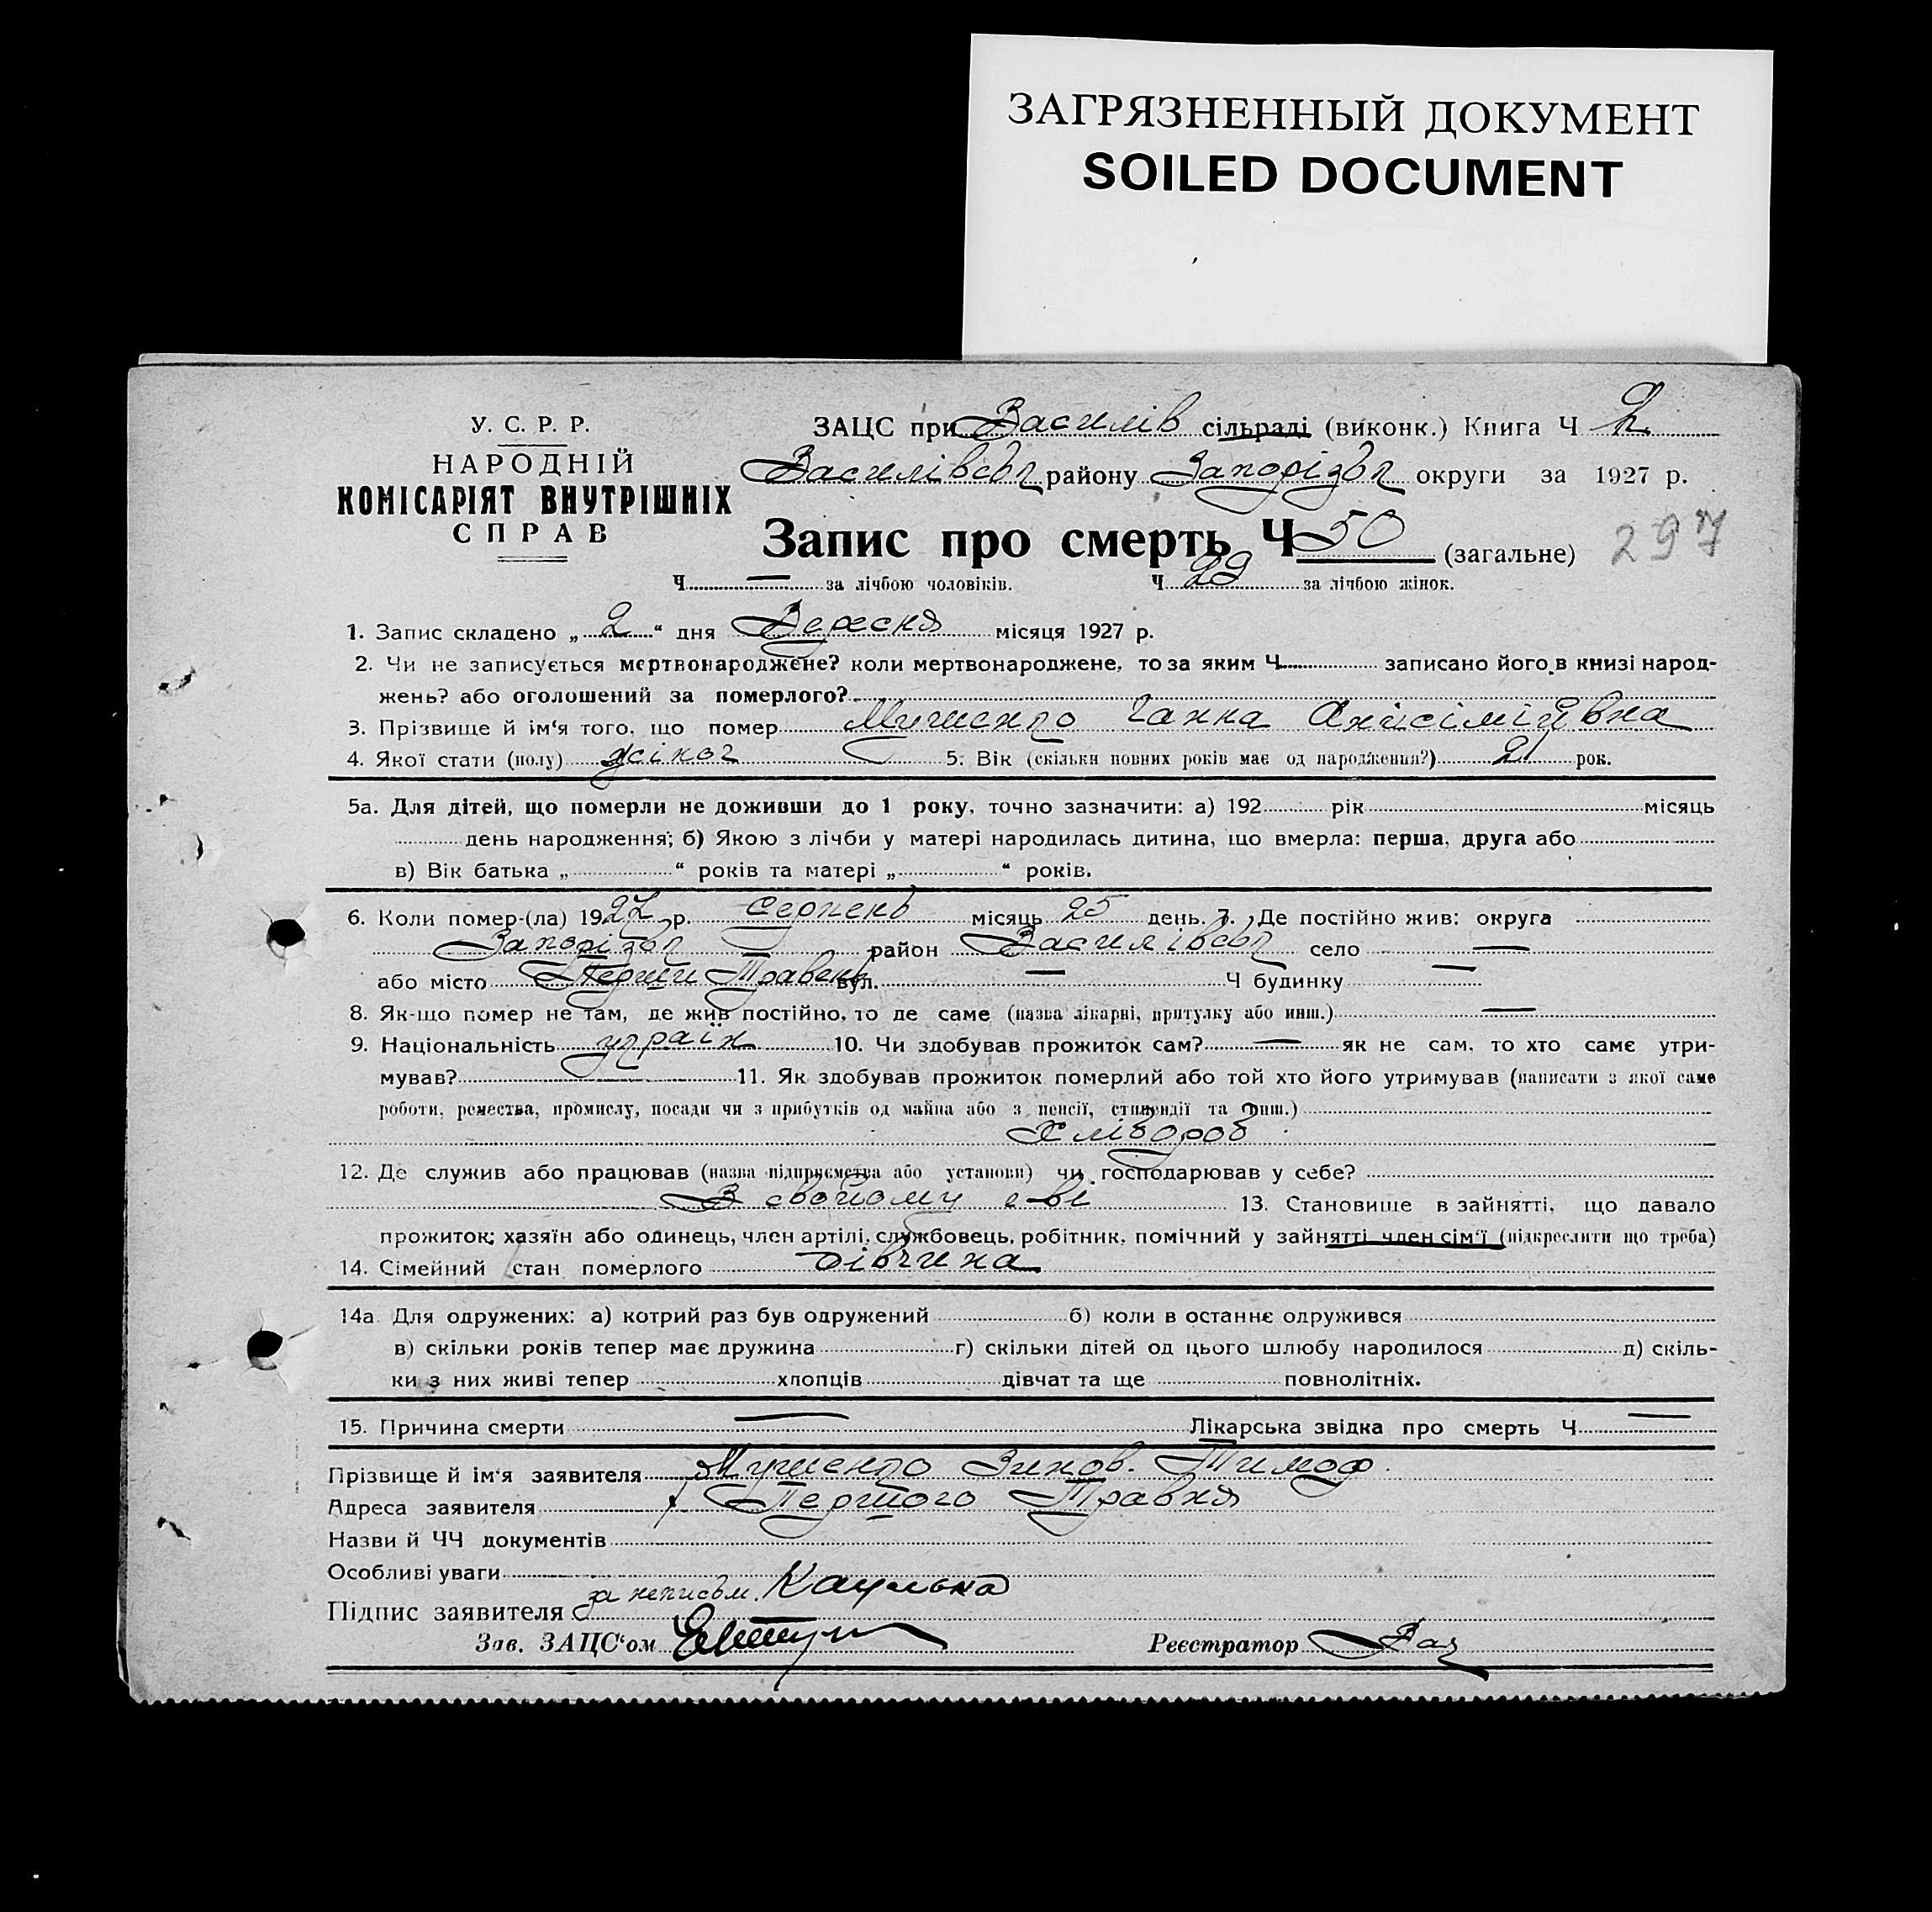 ЗАГРЯЗНЕННЫЙ ДОКУМЕНТ
SOILED DOCUMENT
У. С. Р. Р.
НАРОДНІЙ
КОМІСАРІЯТ ВНУТРІШНІХ
СПРАВ
ЗАЦС при Василів сільраді (виконк.) Книга Ч 2
Василівськ району Запорізьк округи за 1927 р.
Запис про смерть Ч 50 (загальне) 297
Ч — за лічбою чоловіків. Ч 29 за лічбою жінок.
1. Запис складено „ 2 “ дня Вересня місяця 1927 р.
2. Чи не записується мертвонароджене? коли мертвонароджене, то за яким Ч. записано його в книзі народ-
жень? або оголошений за померлого?
3. Прізвище й ім‘я того, що помер Ганна Анісімівна
4. Якої стати (полу) жіноч 5. Вік (скільки повних років має од народження?) 21 рок.
5а. Для дітей, що померли не доживши до 1 року, точно зазначити: а) 192 рік місяць
день народження; б) Якою з лічби у матері народилась дитина, що вмерла: перша, друга або
в) Вік батька „ “ років та матері „ “ років.
6. Коли помер-(ла) 1927 р. Серпень місяць 25 день. 7. Де постійно жив: округа
Запорізьк район Василівськ село —
або місто Перши Травень вул. — Ч будинку —
8. Як-що помер не там, де жив постійно, то де саме (назва лікарні, притулку або инш.) —
9. Національність україн 10. Чи здобував прожиток сам? — як не сам, то хто саме утри-
мував? 11. Як здобував прожиток померлий або той хто його утримував (написати з якої саме
роботи, ремества, промислу, посади чи з прибутків од майна або з пенсії, стипендії та инш.)
Хлібороб
12. Де служив або працював (назва підприємства або установи) чи господарював у себе?
В свойому с-ві 13. Становище в зайнятті, що давало
прожиток; хазяїн або одинець, член артілі, службовець, робітник, помічний у зайнятті член сім‘ї (підкреслити що треба)
14. Сімейний стан померлого дівчина
14а. Для одружених: а) котрий раз був одружений б) коли в останнє одружився
в) скільки років тепер має дружина г) скільки дітей од цього шлюбу народилося д) скіль-
ки з них живі тепер хлопців дівчат та ще повнолітніх.
15. Причина смерти — Лікарська звідка про смерть Ч —
Прізвище й ім‘я заявителя Зинов. Тимоф.
Адреса заявителя Першого Травня
Назви й ЧЧ документів
Особливі уваги
Підпис заявителя за неписьм.
Зав. ЗАЦС‘ом Реєстратор